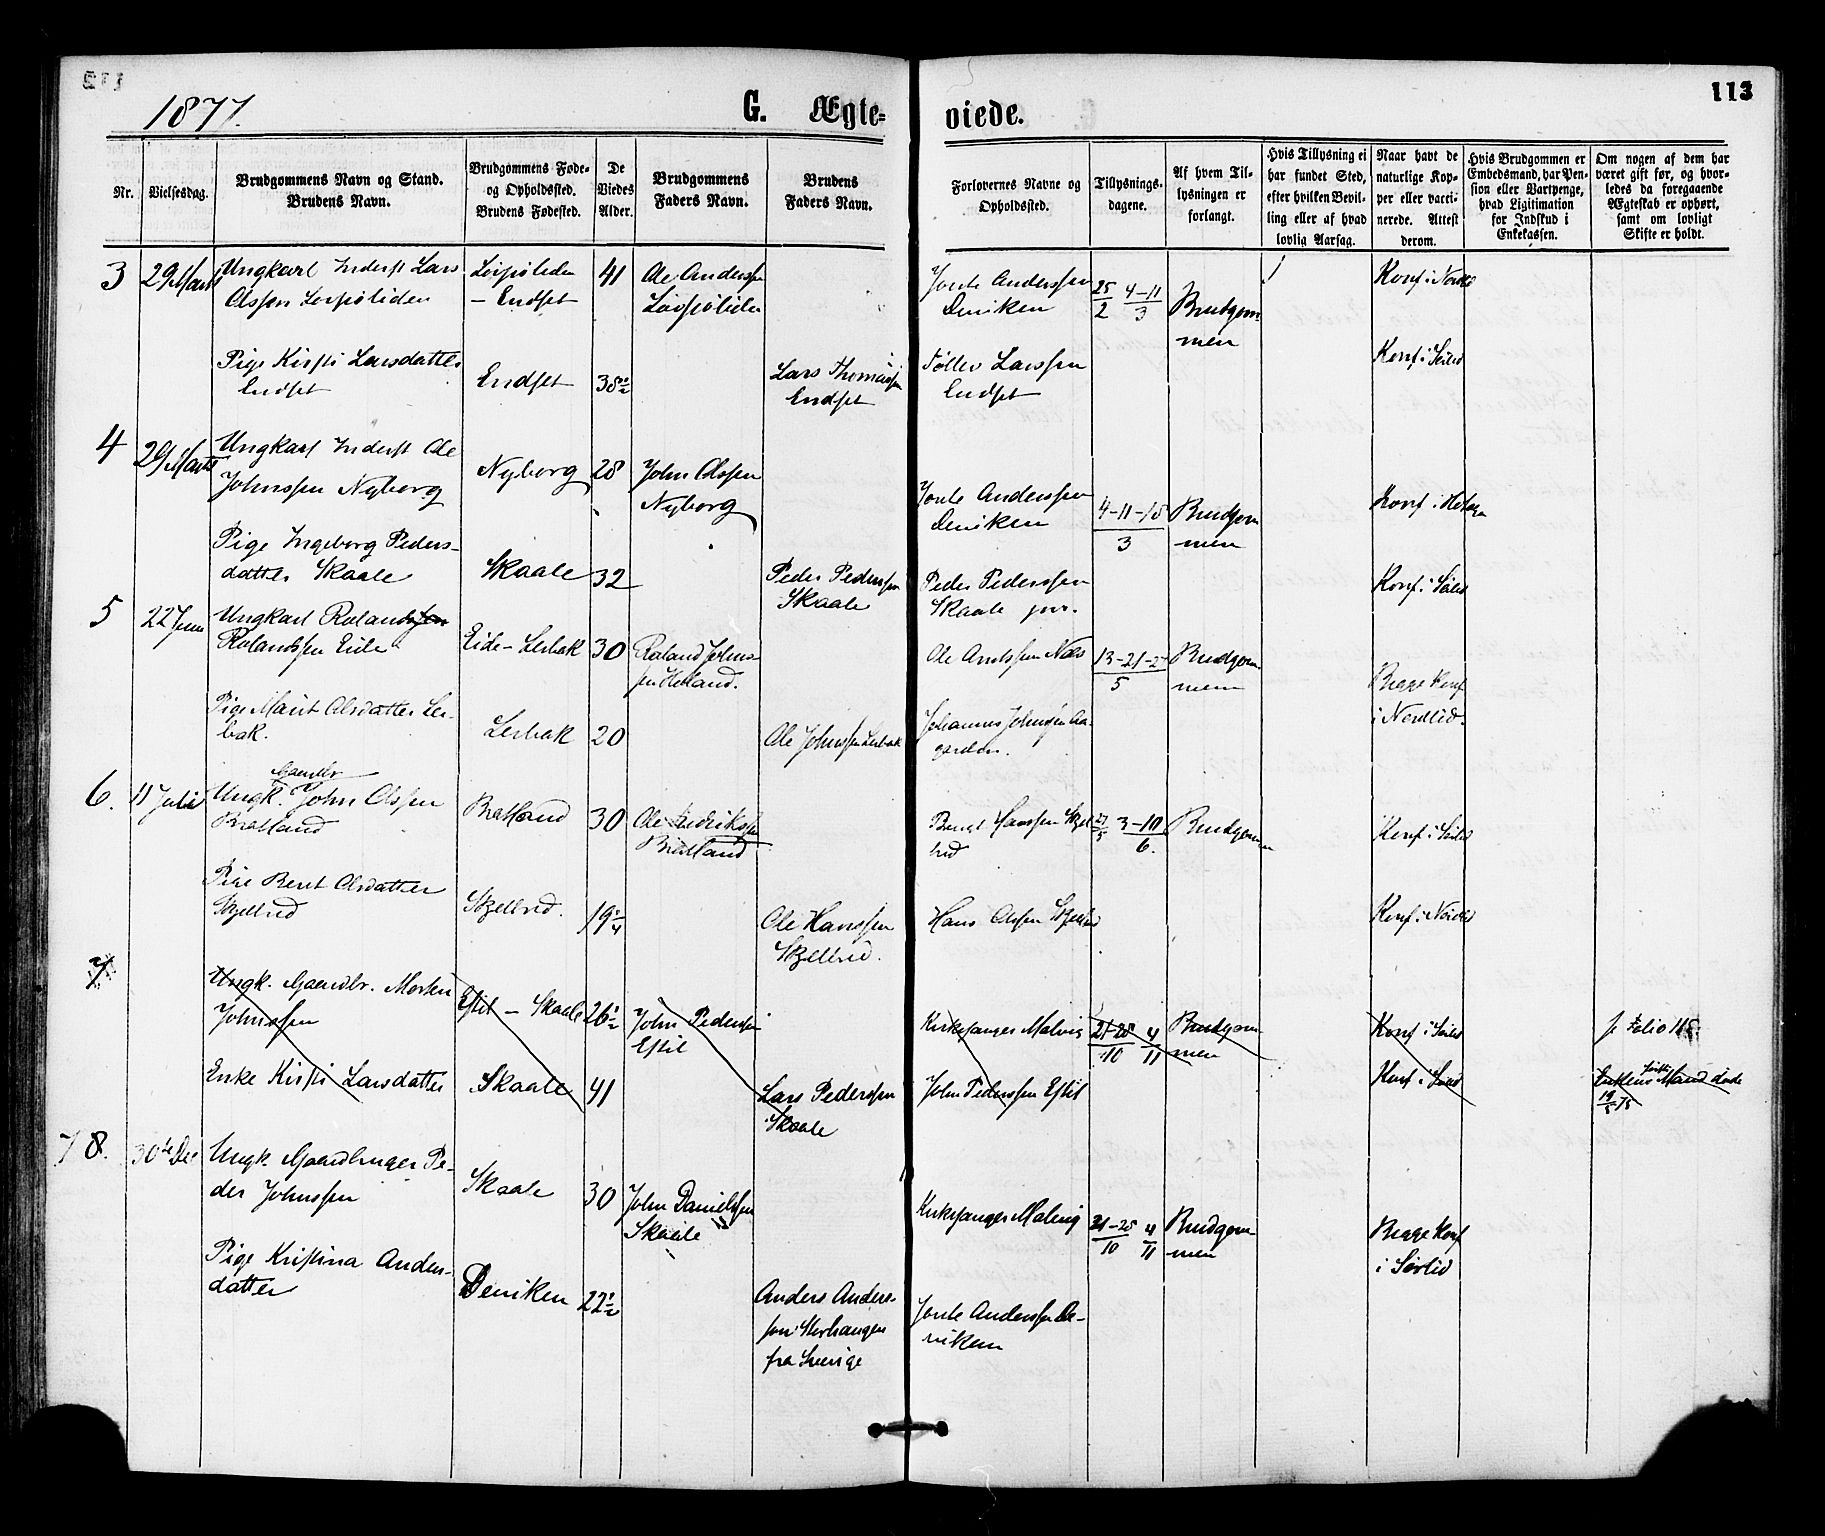 1877.
G. Ægte-
viede.
113
Nr.
Vielsesdag.
Brudgommens Navn og Stand.
Brudens Navn.
Brudgommens Føde-
og Opholdssted.
Brudens Fødested.
De
Viedes
Alder.
Brudgommens
Faders Navn.
Brudens
Faders Navn.
Forlovernes Navne og
Opholdssted.
Tillysnings-
dagene.
Af hvem Til-
lysningen er
forlangt.
Hvis Tillysning ei
har fundet Sted,
efter hvilken Bevil-
ling eller af hvad
lovlig Aarsag.
Naar havt de
naturlige Kop-
per eller vacci-
nerede. Attest
derom.
Hvis Brudgommen er
Embedsmand, har Pen-
sion eller Vartpenge,
hvad Ligitimation
for Indskud i
Enkekassen.
Om nogen af dem har
været gift før, og hvor-
ledes da foregaaende
Ægteskab er ophørt,
samt om lovligt
Skifte er holdt.
3 29 Marts Ungkarl Inderst Lars
Olssen
- Endset
41 Ole Anderssen
Jonte Anderssen
Deviken
25/2 4-11/3 Brudgom-
men
Konf. i Nordli
Pige Kirsti Larsdatter
Endset
Endset 38 1/2
Lars Thomassen
Endset
Töllev Larssen
Endset
Konf. i Sörlid
4 29 Marts Ungkarl Inderst Ole
Johnssen Nyborg
Nyborg 28 John Olssen
Nyborg
Jonte Anderssen
Deviken
4-11-18/3 Brudgom
men
Konf. i
Pige Ingeborg Peders-
datter Skaale
Skaale 32
Peder Pederssen
Skaale
Peder Pederssen
Skaale jun.
Konf. i Sörlid
5 22 Juni Ungkarl Roland
Rolandssen Eide
Eide - Lerbak 30 Roland Johns-
sen
Ole Arntssen Næs
13-21-27/5 Brudgom
men
Begge Konf
i Nordlid.
Pige Marit Olsdatter Ler-
bak.
Lerbak 20
Ole Johnssen Lerbak
Johannes Johnsen Aa-
garden.
6. 11 Juli Ungk. Gaardbr John Olssen
Bratland
Bratland 30 Ole Fredrikssen
Bratland
Bengt Hanssen Skjel
bred
27/5 3-10/6. Brudgommen
Konf. i Sörlid
Pige Berit Olsdatter
Skjelbred
Skjelbred. 19 1/4
Ole Hanssen
Skjelbred.
Hans Olssen Skjelbred
Konf. i Nordlid
7
Ungk. Gaardbr. Morten
Johnssen
Estil - Skaale 26 1/2
John Pederssen
Estil
Kirkesanger Malvig
21-28/10 4/11 Brudgom
men
Konf. i Sörlid
Folio 118.
Enke Kirsti Larsdatter
Skaale 41
Lars Pederssen
Skaale
John Pederssen Estil
Konf. i Sörlid
Enkens første Mand døde
19/5 75
7 8. 30te Dec Ungk. Gaardbruger Pe-
der Johnssen
Skaale 30 John Danielssen
Skaale
Kirkesanger Malvig
21-28/10 4/11 Brudgom-
men
Begge Konf
i Sörlid
Pige Kristina Anders-
datter
Deviken 22 1/2
Anders Anders-
sen
fra Sverige
Jonte Anderssen De-
viken